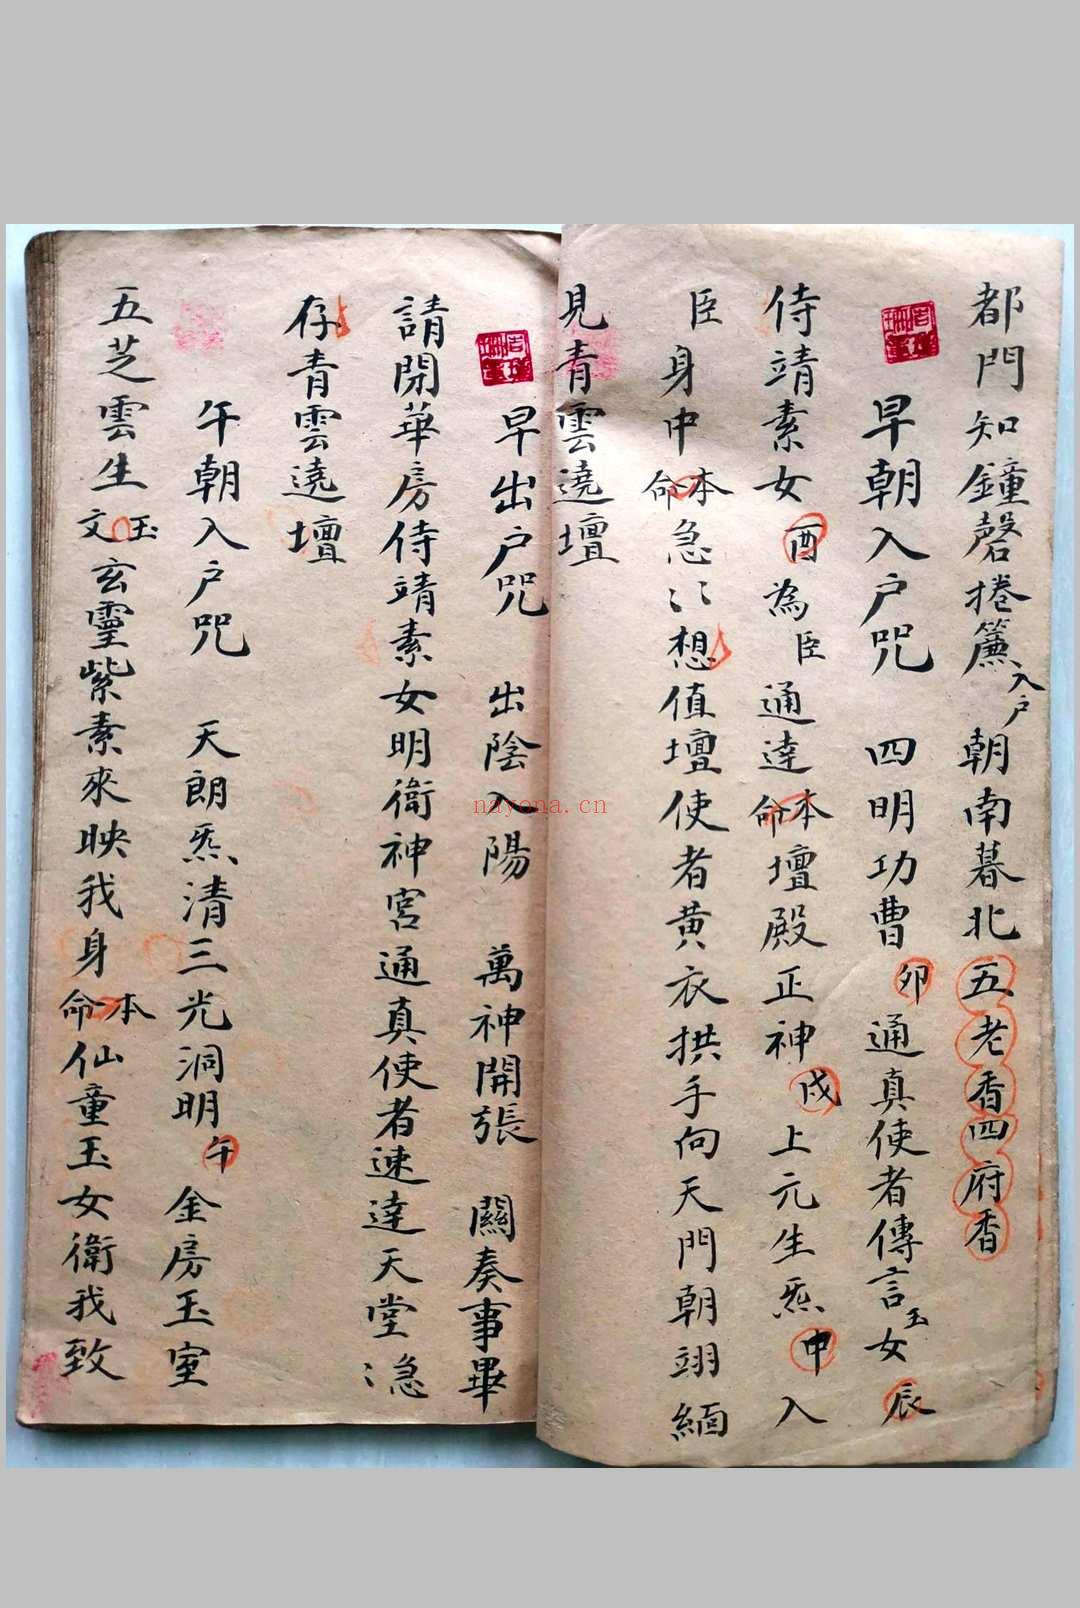 都門知鐘磬捲簾入户朝南暮北五老香四府香
早朝入户咒 四明功曹卯通真使者傳言玉女辰
侍靖素女酉為臣通達本命壇殿正神戌上元生炁申入
臣身中本命急⺀想值壇使者黄衣拱手向天門朝翊緬
見青雲遶壇
早出户咒 出陰入陽 萬神開張 關奏事畢
請閉華房侍靖素女明衛神宮通真使者速達天堂急
存青雲遶壇
午朝入户咒 天朗炁清三光洞明午金房玉室
五芝雲生玉文玄靈紫素來映我身本命仙童玉女衛我致
nayona.cn